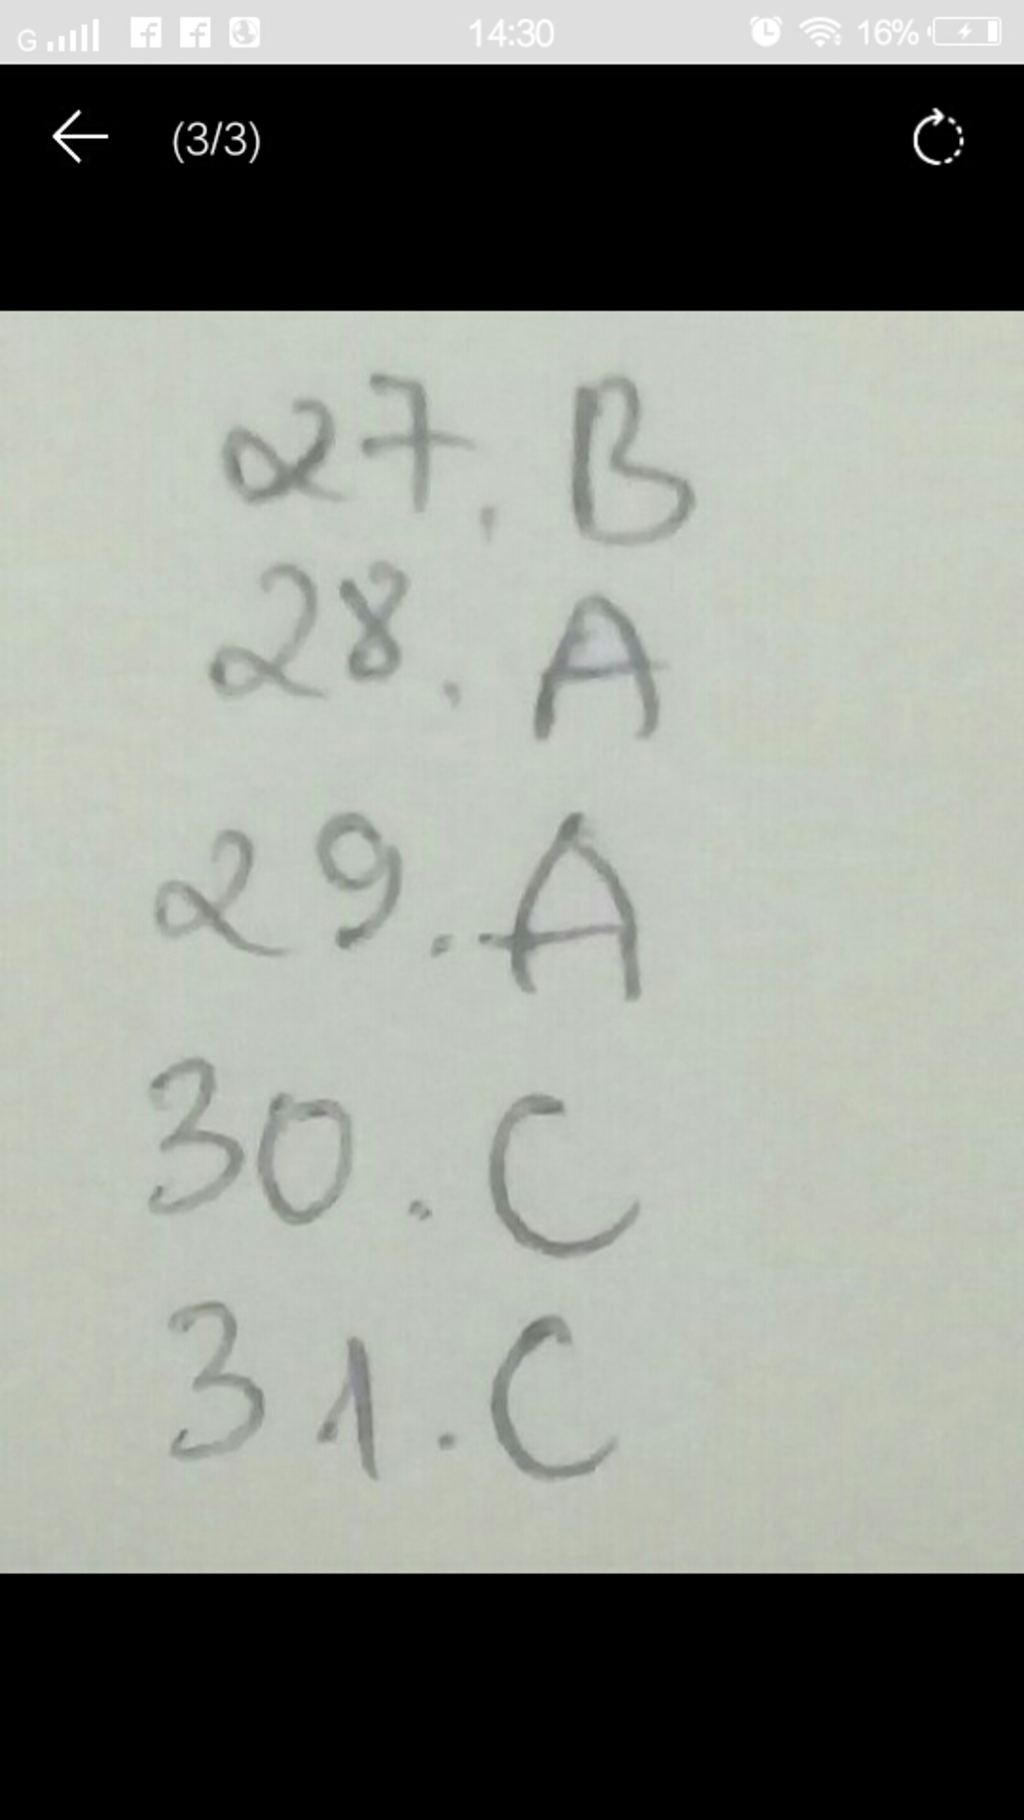 G 14:30 16%
(3/3)
27. B
28. A
29. A
30. C
31. C